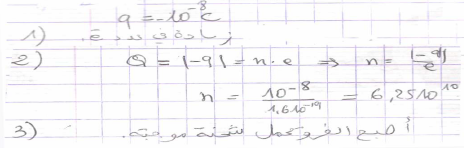 q = -10⁻⁸C
1) زيادة في عدد.
-2) Q = |-q| = n.e ⇒ n = |-q|/e
n = 10⁻⁸/1,6 10⁻¹⁹ = 6,25 10¹⁰
3) أصبح الفرو يحمل شحنة موجبة.